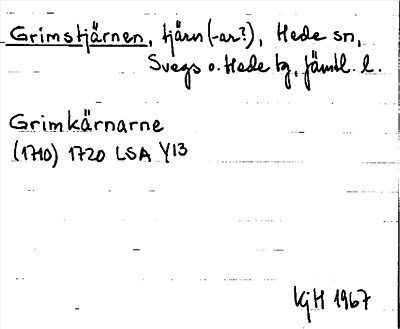 Grimstjärnen, tjärn (-ar?), Hede sn,
Svegs o. Hede tg, Jämtl. l.
Grimkärnarne
(1710) 1720 LSA Y13
KjH 1967